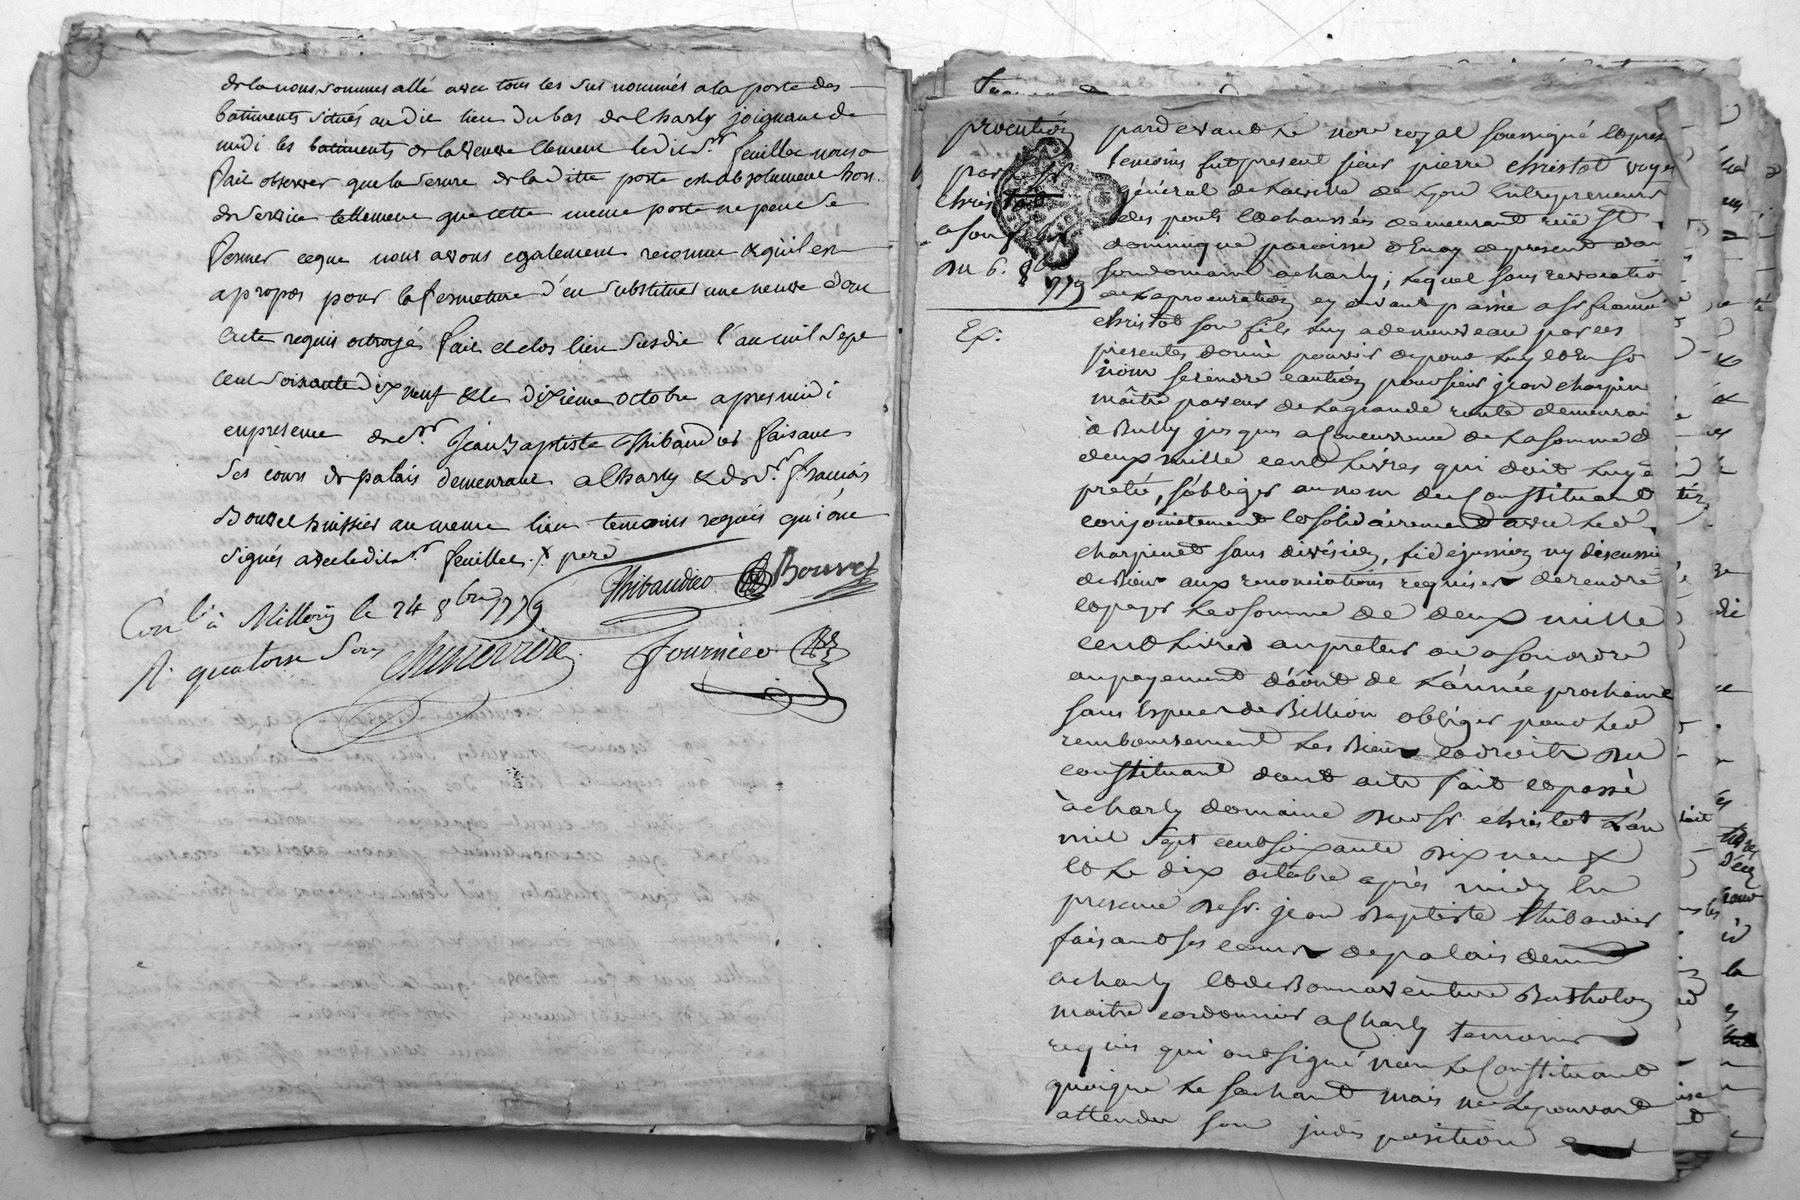 de la nous sommes allé avec tous les sus nommés a la porte des
batiments situés au dit lieu du bas de Charly joignant de
midi les batiments de la veuve Clement ledit Sr. feuillet nous a
fait observer que la serrure de la ditte porte est absolument hors
de service tellement que cette meme porte ne peut se
fermer ce que nous avons egalement reconnu & qu'il est
a propos pour la fermeture d'en substituer une neuve dont
acte requis octroyé fait et clos lieu susdit l'an mil sept
cent soixante dix neuf & le dixieme octobre apres midi
en presence de Sr. Jean Baptiste Thibaudier faisant
ses cours de palais demeurant a Charly & de Sr. françois
Bouvet huissier au meme lieu temoins requis qui ont
signés avec ledit Sr. feuillet pere
Thibaudier Bouvet
Con.lé à Millery le 24 8bre 1779
R. quatorze Sous
Fournier
procuration
par Sr.
christot
a son fils
du 6. 8bre
1779
Ex.
pardevant le nore royal soussigné et pres
temoins fut present sieur pierre christot voyer
général de la ville de Lyon Entrepreneur
des ponts et chaussées demeurant rüe St
dominique paroisse d'Enay et present dans
son domaine a charly; lequel sans revocation
de la procuration cy devant passée a sr francois
christot son fils luy a de nouveau par ces
presentes donné pouvoir de pour luy et En so
nom se rendre caution pour sieur jean charpin
maître paveur de la grande route demeurai
à Bully jusques a Concurrence de la somme d
deux mille cent livres qui doit luy e
preté, s'obliger au nom du Constituant
conjointement et solidairement avec led
charpin et sans division, fidejussion ny discussi
de Biens aux renonciations requises de rendre
et payer la somme de deux mille
cent livres au preteur ou a son ordre
au payement d'août de l'année prochaine
sans Espece de Billion obliger pour led
remboursement les Biens et droits du
constituant dont acte fait et passé
à charly domaine du sr. christot l'an
mil sept cent soixante dix neuf
et le dix octobre après midy En
presence de sr. jean Baptiste Thibaudier
faisant ses cours de palais demt
a charly et de Bonnaventure Bartholon
maitre cordonnier a Charly temoins
requis qui ont signé non le Constituant
quoique le sachant mais ne le pouvant
attendu son indisposition